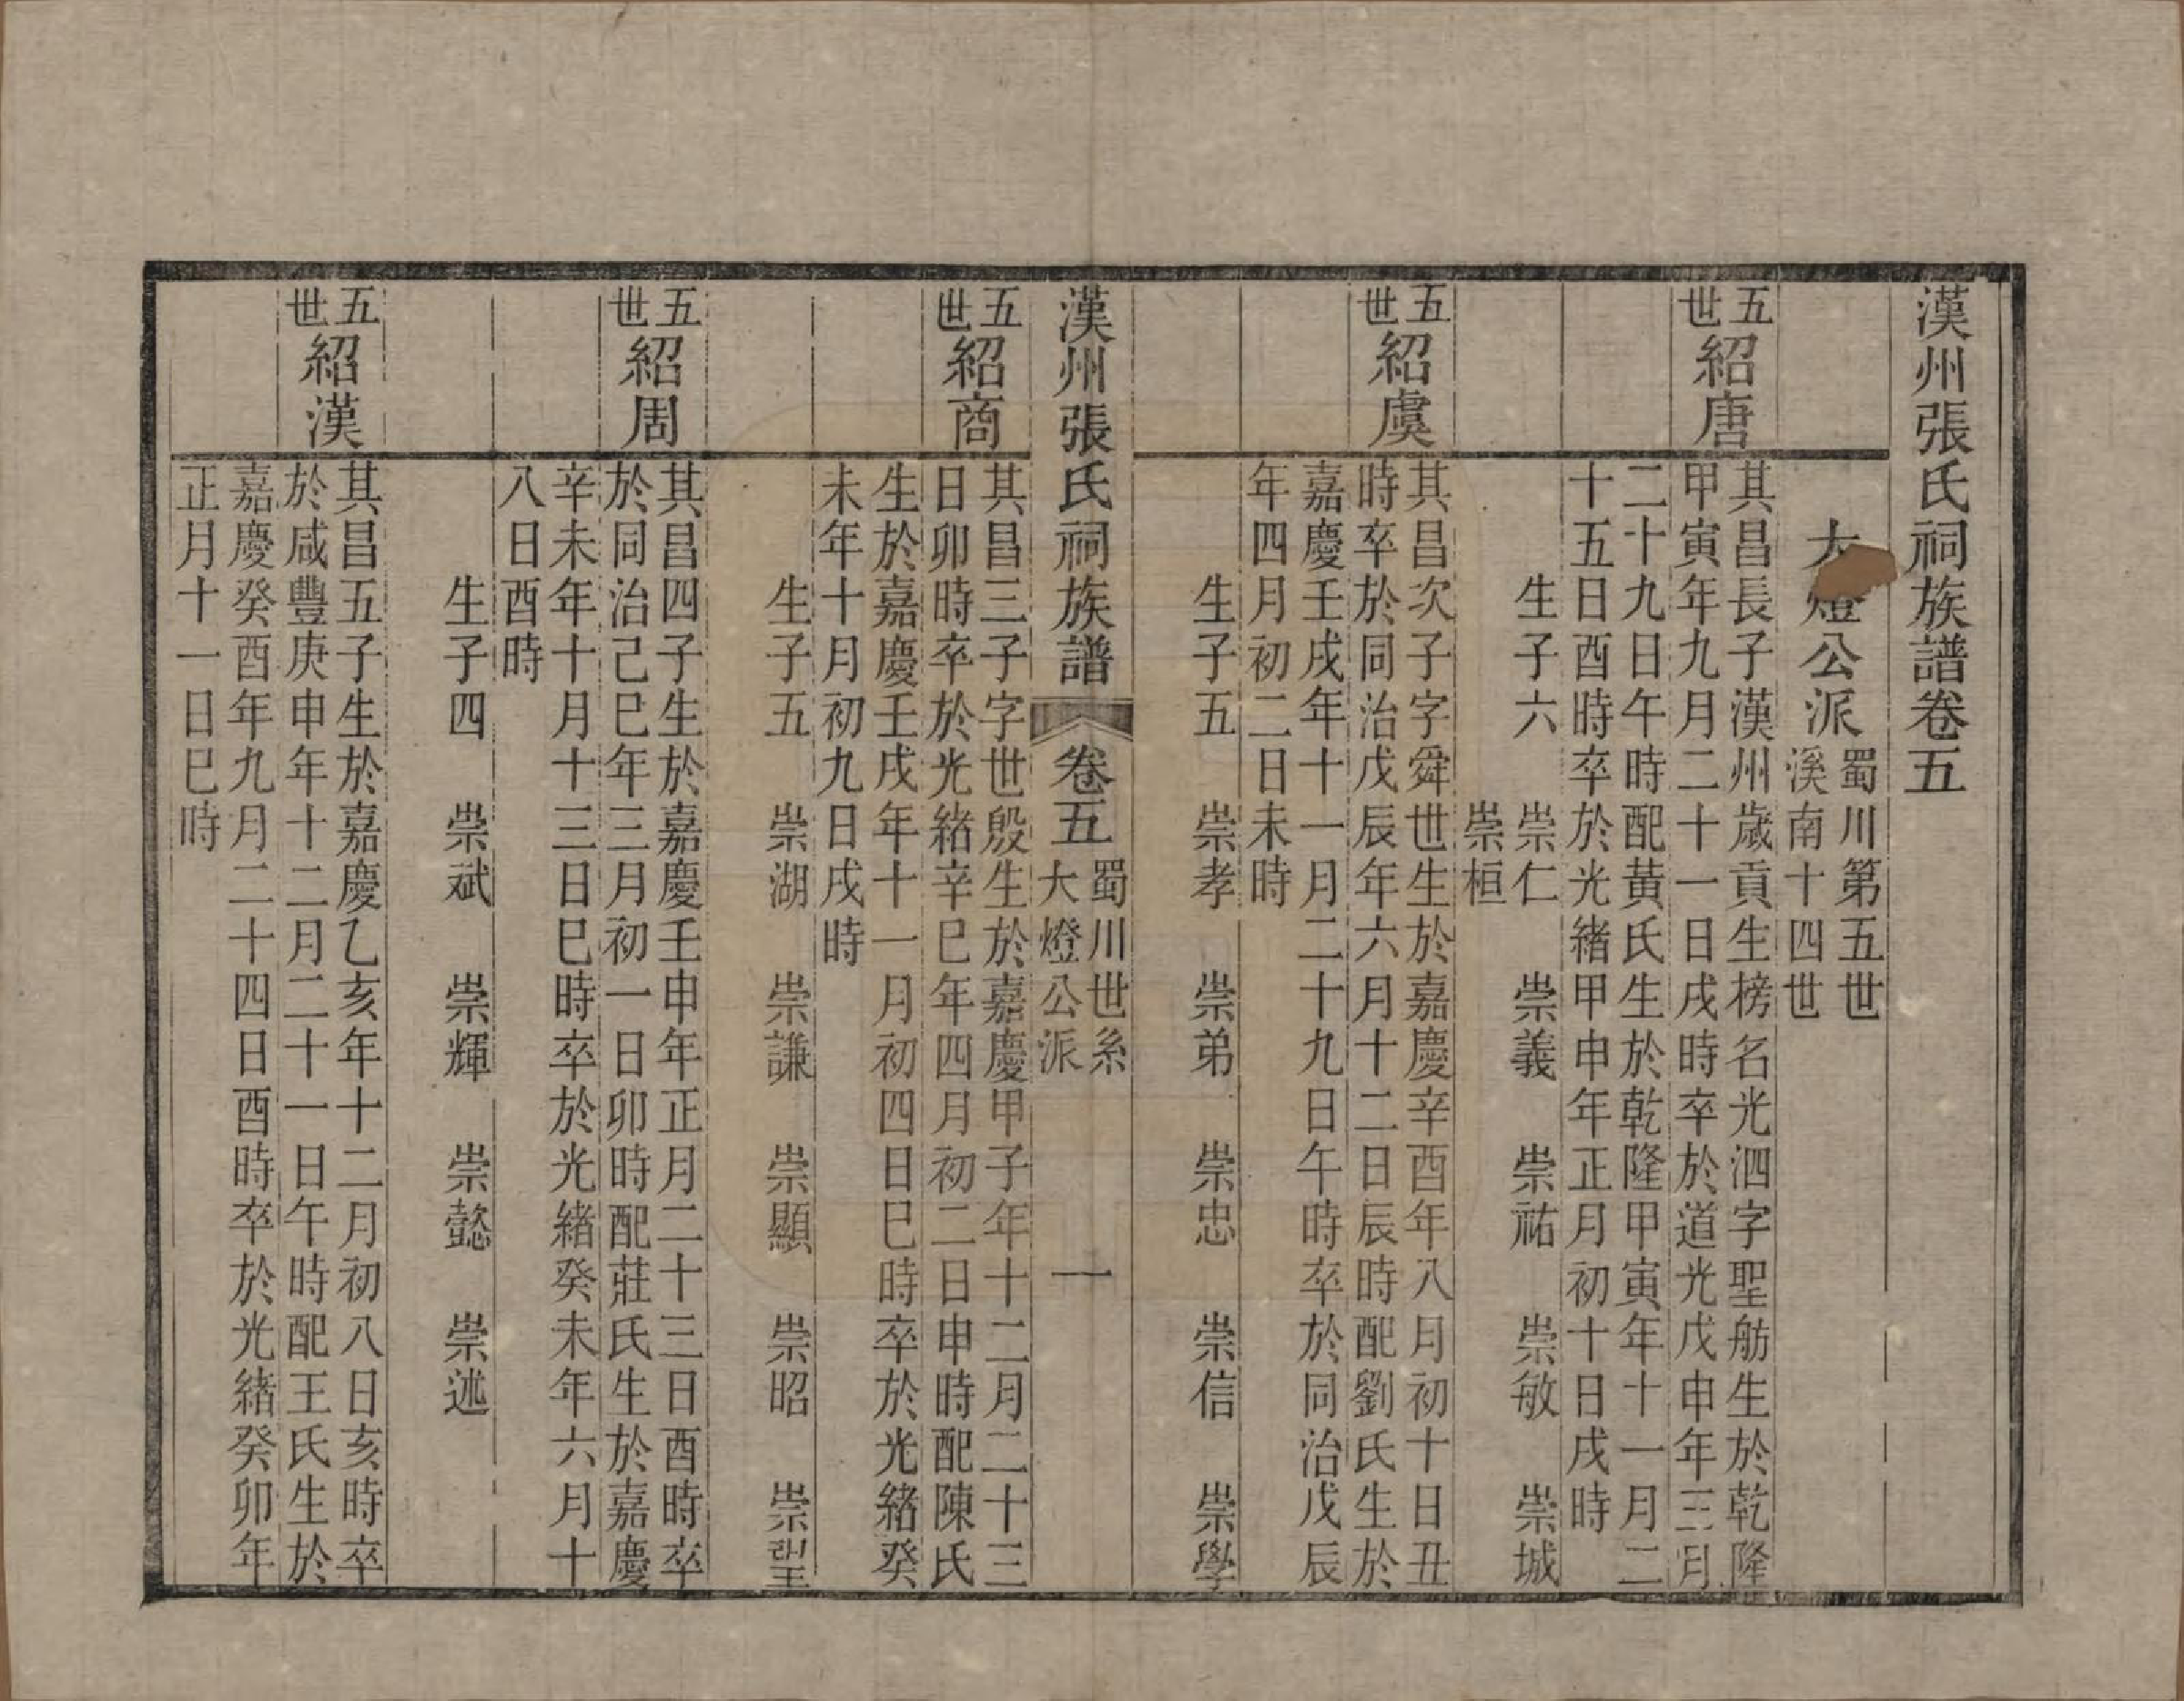 漢州張氏祠族譜卷五
大燈公派 蜀川第五世
溪南十四世
五世 紹唐
其昌長子漢州歲貢生榜名光泗字聖舫生於乾隆
甲寅年九月二十一日戌時卒於道光戊申年三月
二十九日午時配黃氏生於乾隆甲寅年十一月二
十五日酉時卒於光緒甲申年正月初十日戌時
生子六 崇仁 崇義 崇祐 崇敏 崇城
崇桓
五世 紹虞
其昌次子字舜世生於嘉慶辛酉年八月初十日丑
時卒於同治戊辰年六月十二日辰時配劉氏生於
嘉慶壬戌年十一月二十九日午時卒於同治戊辰
年四月初二日未時
生子五 崇孝 崇弟 崇忠 崇信 崇學
漢州張氏祠族譜 卷五 蜀川世系
大燈公派 一
五世 紹商
其昌三子字世殷生於嘉慶甲子年十二月二十三
日卯時卒於光緒辛巳年四月初二日申時配陳氏
生於嘉慶壬戌年十一月初四日巳時卒於光緒癸
未年十月初九日戌時
生子五 崇湖 崇謙 崇顯 崇昭 崇聖
五世 紹周
其昌四子生於嘉慶壬申年正月二十三日酉時卒
於同治己巳年三月初一日卯時配莊氏生於嘉慶
辛未年十月十三日巳時卒於光緒癸未年六月十
八日酉時
生子四 崇斌 崇輝 崇懿 崇述
五世 紹漢
其昌五子生於嘉慶乙亥年十二月初八日亥時卒
於咸豐庚申年十二月二十一日午時配王氏生於
嘉慶癸酉年九月二十四日酉時卒於光緒癸卯年
正月十一日巳時